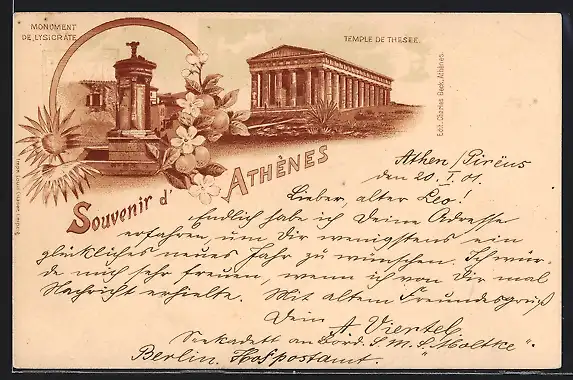 MONUMENT
DE LYSICRATE
TEMPLE DE THESEE.
Edit. Charles Beck, Athènes.
Souvenir d'
ATHÈNES
Athen/Piräus
den 20. I. 01.
Lieber, alter Leo!
Endlich habe ich Deine Adresse
erfahren um Dir wenigstens ein
glückliches neues Jahr zu wünschen. Ich wür-
de mich sehr freuen, wenn ich von Dir mal
Nachricht erhielte. Mit altem Freundesgruß
Dein A. Viertel
Seekadett an Bord S.M.S. "Moltke"
Berlin. Hofpostamt.